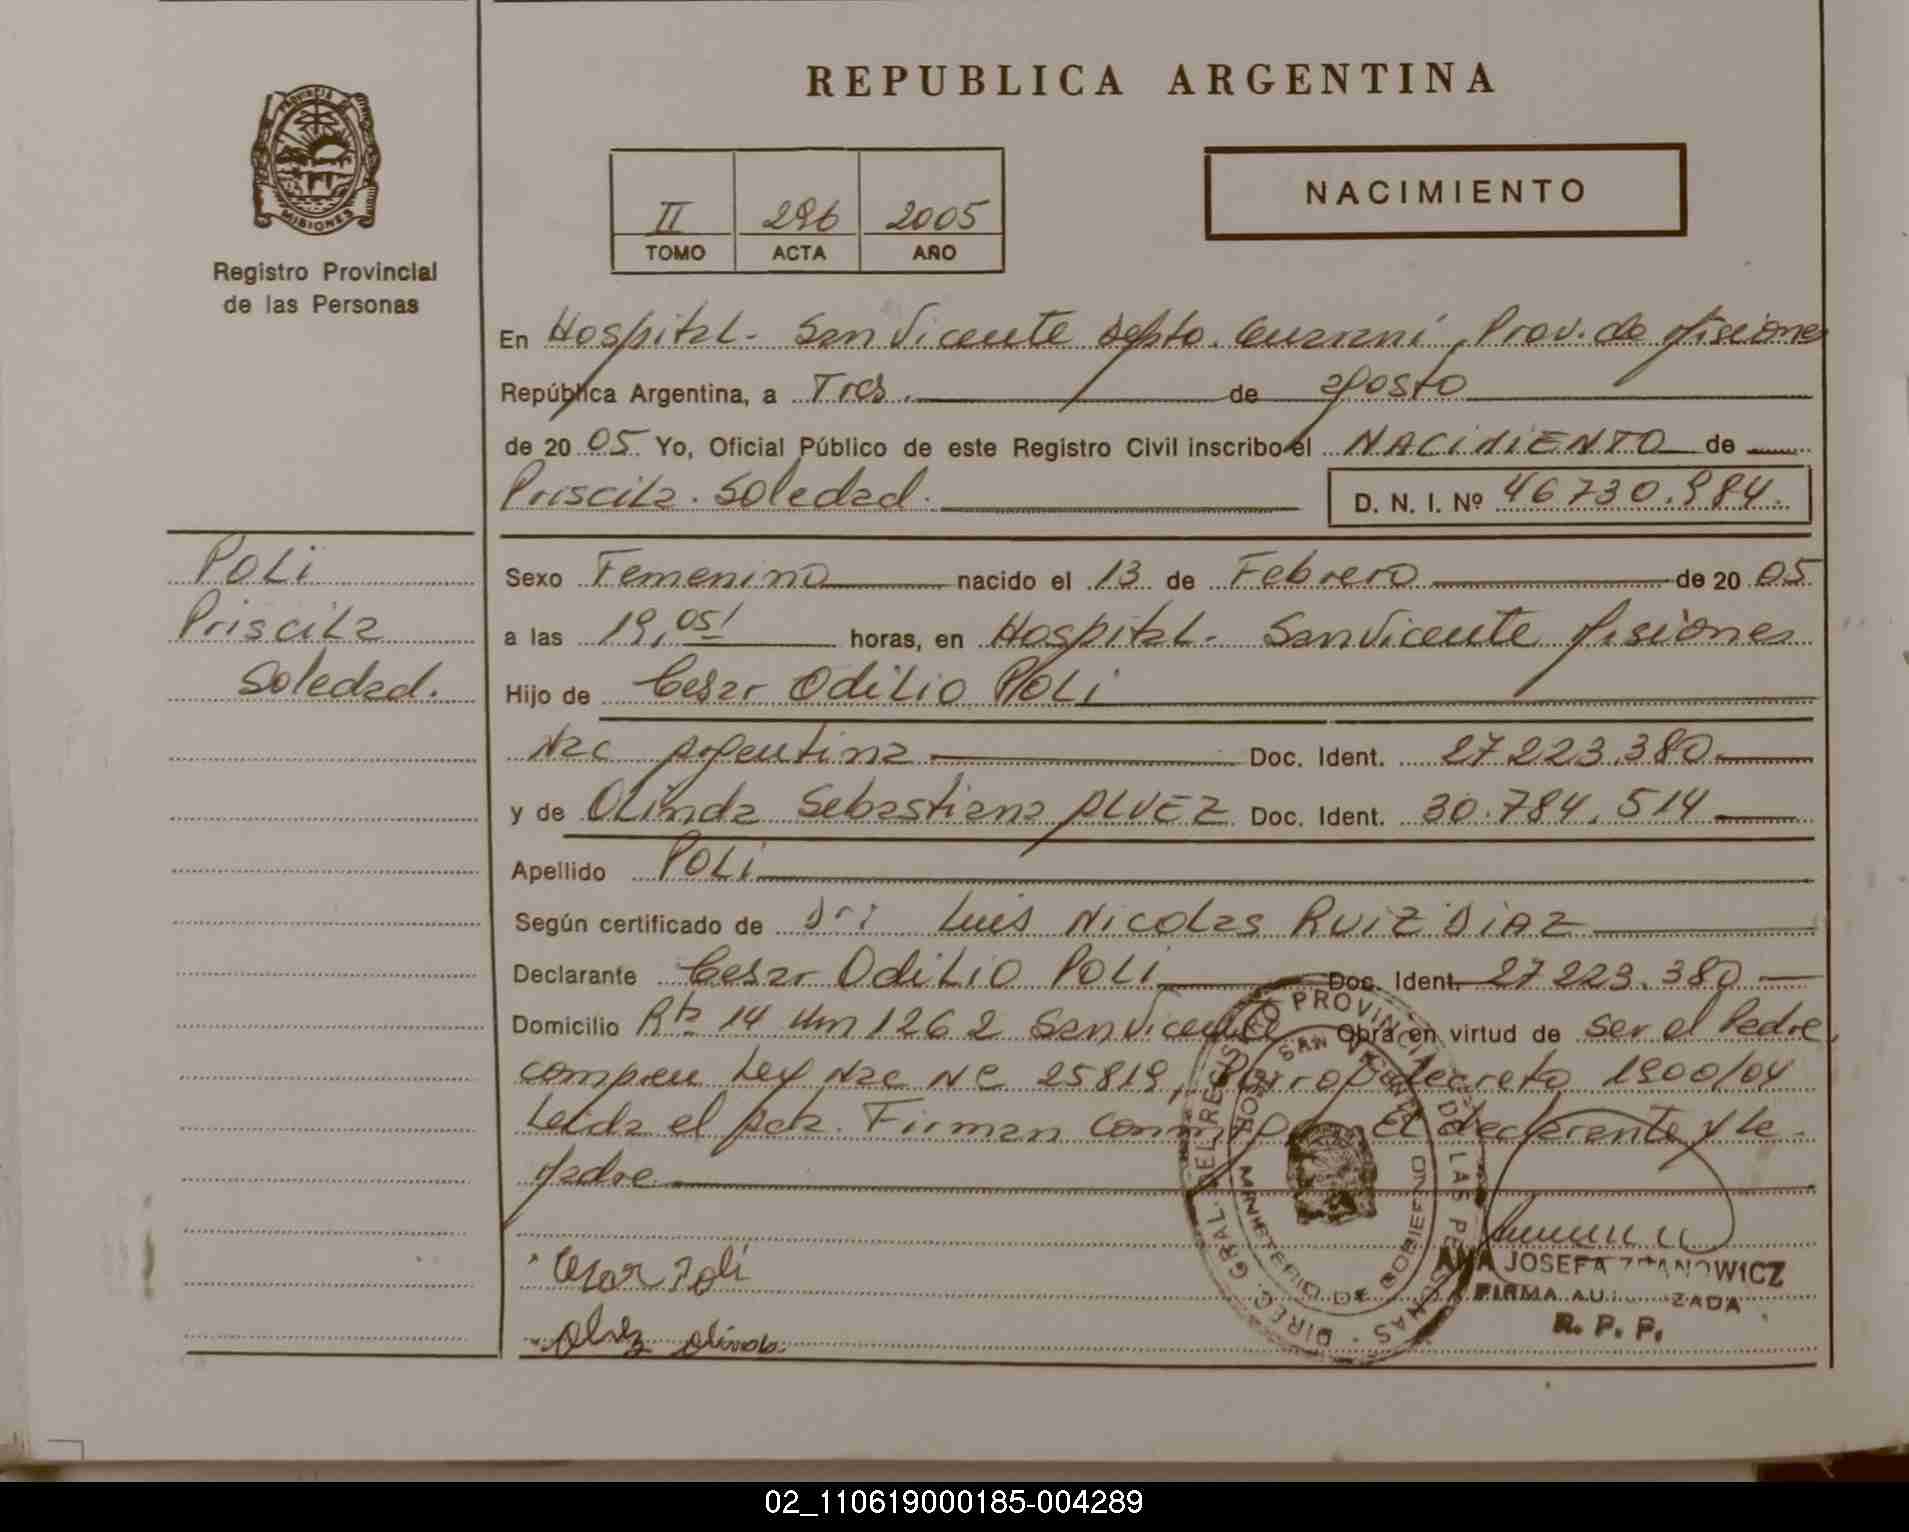 REPUBLICA ARGENTINA
PROVINCIA DE
MISIONES
Registro Provincial
de las Personas
II 296 2005
TOMO ACTA AÑO
NACIMIENTO
En Hospital - San Vicente Depto. Guaraní, Prov. de Misiones
República Argentina, a Tres de agosto
de 20 05 Yo, Oficial Público de este Registro Civil inscribo el NACIMIENTO de
Priscila Soledad. D. N. I. Nº 46730.984.
POLI
Priscila
Soledad.
Sexo Femenino nacido el 13 de Febrero de 20 05
a las 19,05' horas, en Hospital - San Vicente Misiones
Hijo de Cesar Odilio POLI
Nac Argentina Doc. Ident. 27223.380
y de Olinda Sebastiana ALVEZ Doc. Ident. 30.784.514
Apellido POLI
Según certificado de Dr: Luis Nicolas RUIZ DIAZ
Declarante Cesar Odilio POLI Doc. Ident. 27223.380
Domicilio Rta 14 Km 1262 San Vicente Obra en virtud de ser el Padre,
Ley Nac Nº 25819, decreto 1900/04
Leida el Acta. Firman conmigo El declarante y la
Madre
Cesar Poli
Alvez Olinda
DIREC. GRAL. DEL REGISTRO PROVINCIAL DE LAS PERSONAS
SAN VICENTE
MINISTERIO DE GOBIERNO
ANA JOSEFA
FIRMA AUTORIZADA
R. P. P.
02_110619000185-004289